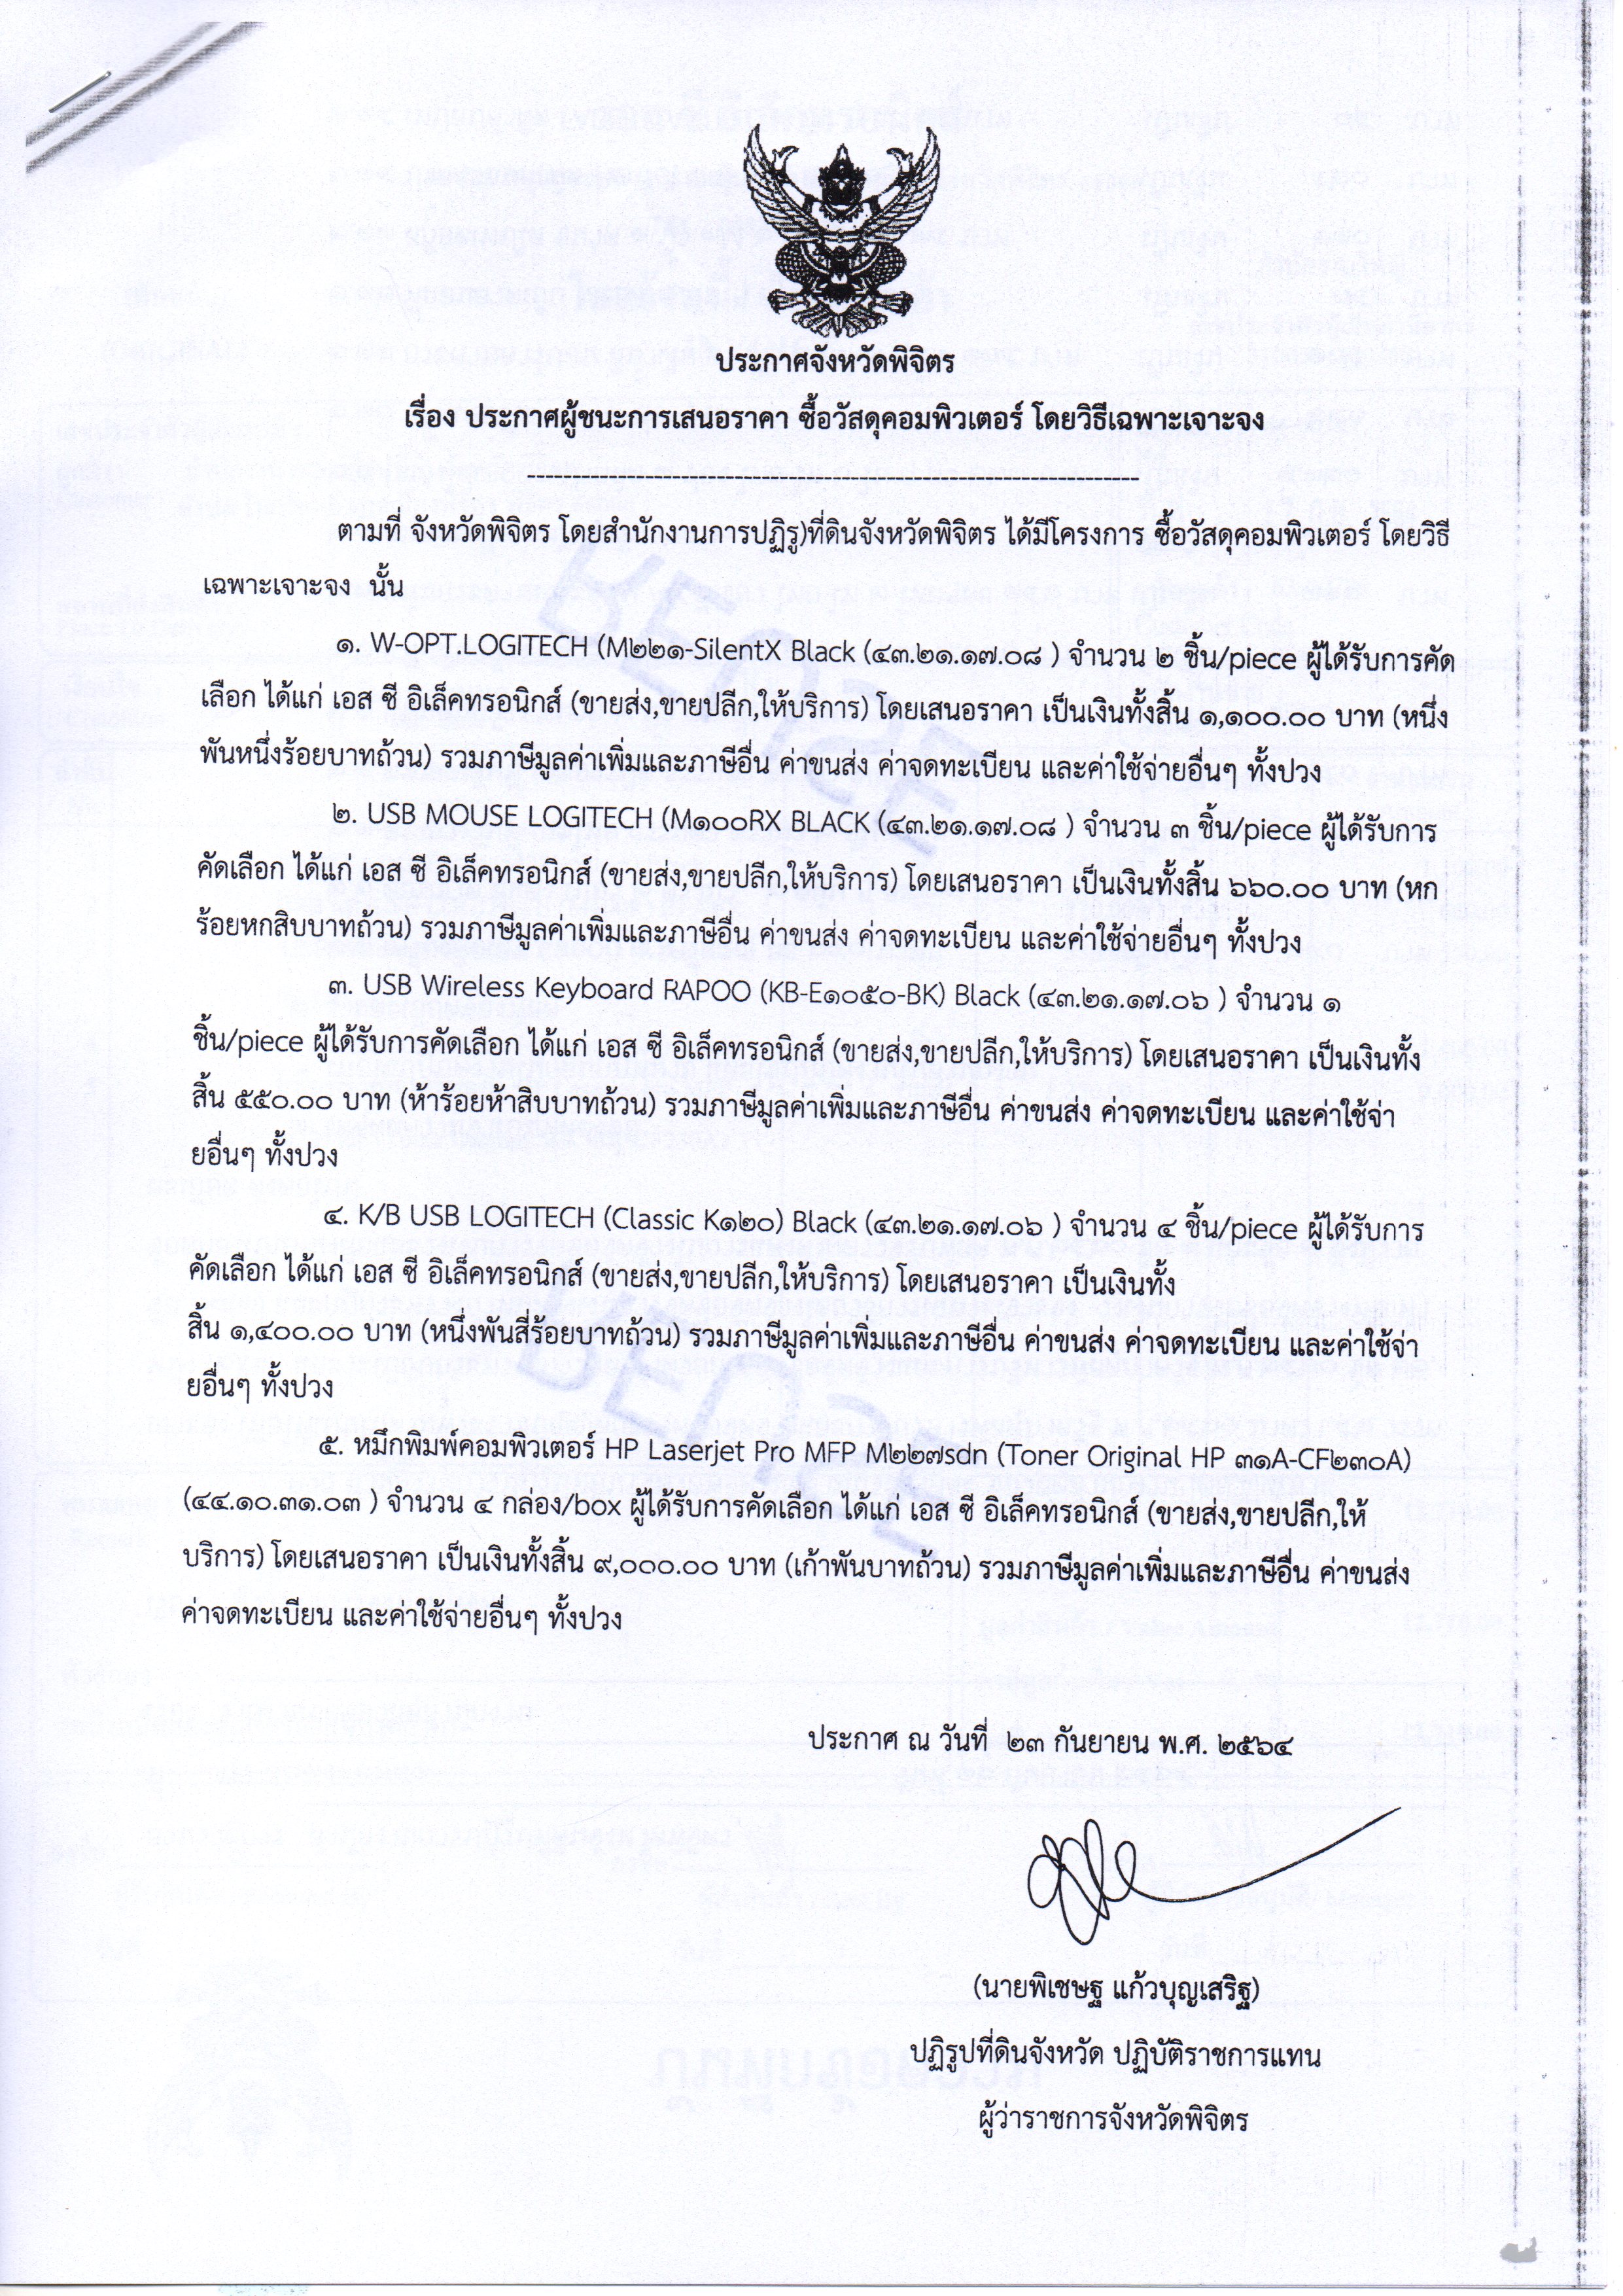 ประกาศจังหวัดพิจิตร
เรื่อง ประกาศผู้ชนะการเสนอราคา ซื้อวัสดุคอมพิวเตอร์ โดยวิธีเฉพาะเจาะจง
--------------------------------------------------------------------
ตามที่ จังหวัดพิจิตร โดยสำนักงานการปฏิรู)ที่ดินจังหวัดพิจิตร ได้มีโครงการ ซื้อวัสดุคอมพิวเตอร์ โดยวิธี
เฉพาะเจาะจง นั้น
๑. W-OPT.LOGITECH (M๒๒๑-SilentX Black (๔๓.๒๑.๑๗.๐๘ ) จำนวน ๒ ชิ้น/piece ผู้ได้รับการคัด
เลือก ได้แก่ เอส ซี อิเล็คทรอนิกส์ (ขายส่ง,ขายปลีก,ให้บริการ) โดยเสนอราคา เป็นเงินทั้งสิ้น ๑,๑๐๐.๐๐ บาท (หนึ่ง
พันหนึ่งร้อยบาทถ้วน) รวมภาษีมูลค่าเพิ่มและภาษีอื่น ค่าขนส่ง ค่าจดทะเบียน และค่าใช้จ่ายอื่นๆ ทั้งปวง
๒. USB MOUSE LOGITECH (M๑๐๐RX BLACK (๔๓.๒๑.๑๗.๐๘ ) จำนวน ๓ ชิ้น/piece ผู้ได้รับการ
คัดเลือก ได้แก่ เอส ซี อิเล็คทรอนิกส์ (ขายส่ง,ขายปลีก,ให้บริการ) โดยเสนอราคา เป็นเงินทั้งสิ้น ๖๖๐.๐๐ บาท (หก
ร้อยหกสิบบาทถ้วน) รวมภาษีมูลค่าเพิ่มและภาษีอื่น ค่าขนส่ง ค่าจดทะเบียน และค่าใช้จ่ายอื่นๆ ทั้งปวง
๓. USB Wireless Keyboard RAPOO (KB-E๑๐๕๐-BK) Black (๔๓.๒๑.๑๗.๐๖ ) จำนวน ๑
ชิ้น/piece ผู้ได้รับการคัดเลือก ได้แก่ เอส ซี อิเล็คทรอนิกส์ (ขายส่ง,ขายปลีก,ให้บริการ) โดยเสนอราคา เป็นเงินทั้ง
สิ้น ๕๕๐.๐๐ บาท (ห้าร้อยห้าสิบบาทถ้วน) รวมภาษีมูลค่าเพิ่มและภาษีอื่น ค่าขนส่ง ค่าจดทะเบียน และค่าใช้จ่า
ยอื่นๆ ทั้งปวง
๔. K/B USB LOGITECH (Classic K๑๒๐) Black (๔๓.๒๑.๑๗.๐๖ ) จำนวน ๔ ชิ้น/piece ผู้ได้รับการ
คัดเลือก ได้แก่ เอส ซี อิเล็คทรอนิกส์ (ขายส่ง,ขายปลีก,ให้บริการ) โดยเสนอราคา เป็นเงินทั้ง
สิ้น ๑,๔๐๐.๐๐ บาท (หนึ่งพันสี่ร้อยบาทถ้วน) รวมภาษีมูลค่าเพิ่มและภาษีอื่น ค่าขนส่ง ค่าจดทะเบียน และค่าใช้จ่า
ยอื่นๆ ทั้งปวง
๕. หมึกพิมพ์คอมพิวเตอร์ HP Laserjet Pro MFP M๒๒๗sdn (Toner Original HP ๓๑A-CF๒๓๐A)
(๔๔.๑๐.๓๑.๐๓ ) จำนวน ๔ กล่อง/box ผู้ได้รับการคัดเลือก ได้แก่ เอส ซี อิเล็คทรอนิกส์ (ขายส่ง,ขายปลีก,ให้
บริการ) โดยเสนอราคา เป็นเงินทั้งสิ้น ๙,๐๐๐.๐๐ บาท (เก้าพันบาทถ้วน) รวมภาษีมูลค่าเพิ่มและภาษีอื่น ค่าขนส่ง
ค่าจดทะเบียน และค่าใช้จ่ายอื่นๆ ทั้งปวง
ประกาศ ณ วันที่ ๒๓ กันยายน พ.ศ. ๒๕๖๔
(นายพิเชษฐ แก้วบุญเสริฐ)
ปฏิรูปที่ดินจังหวัด ปฏิบัติราชการแทน
ผู้ว่าราชการจังหวัดพิจิตร